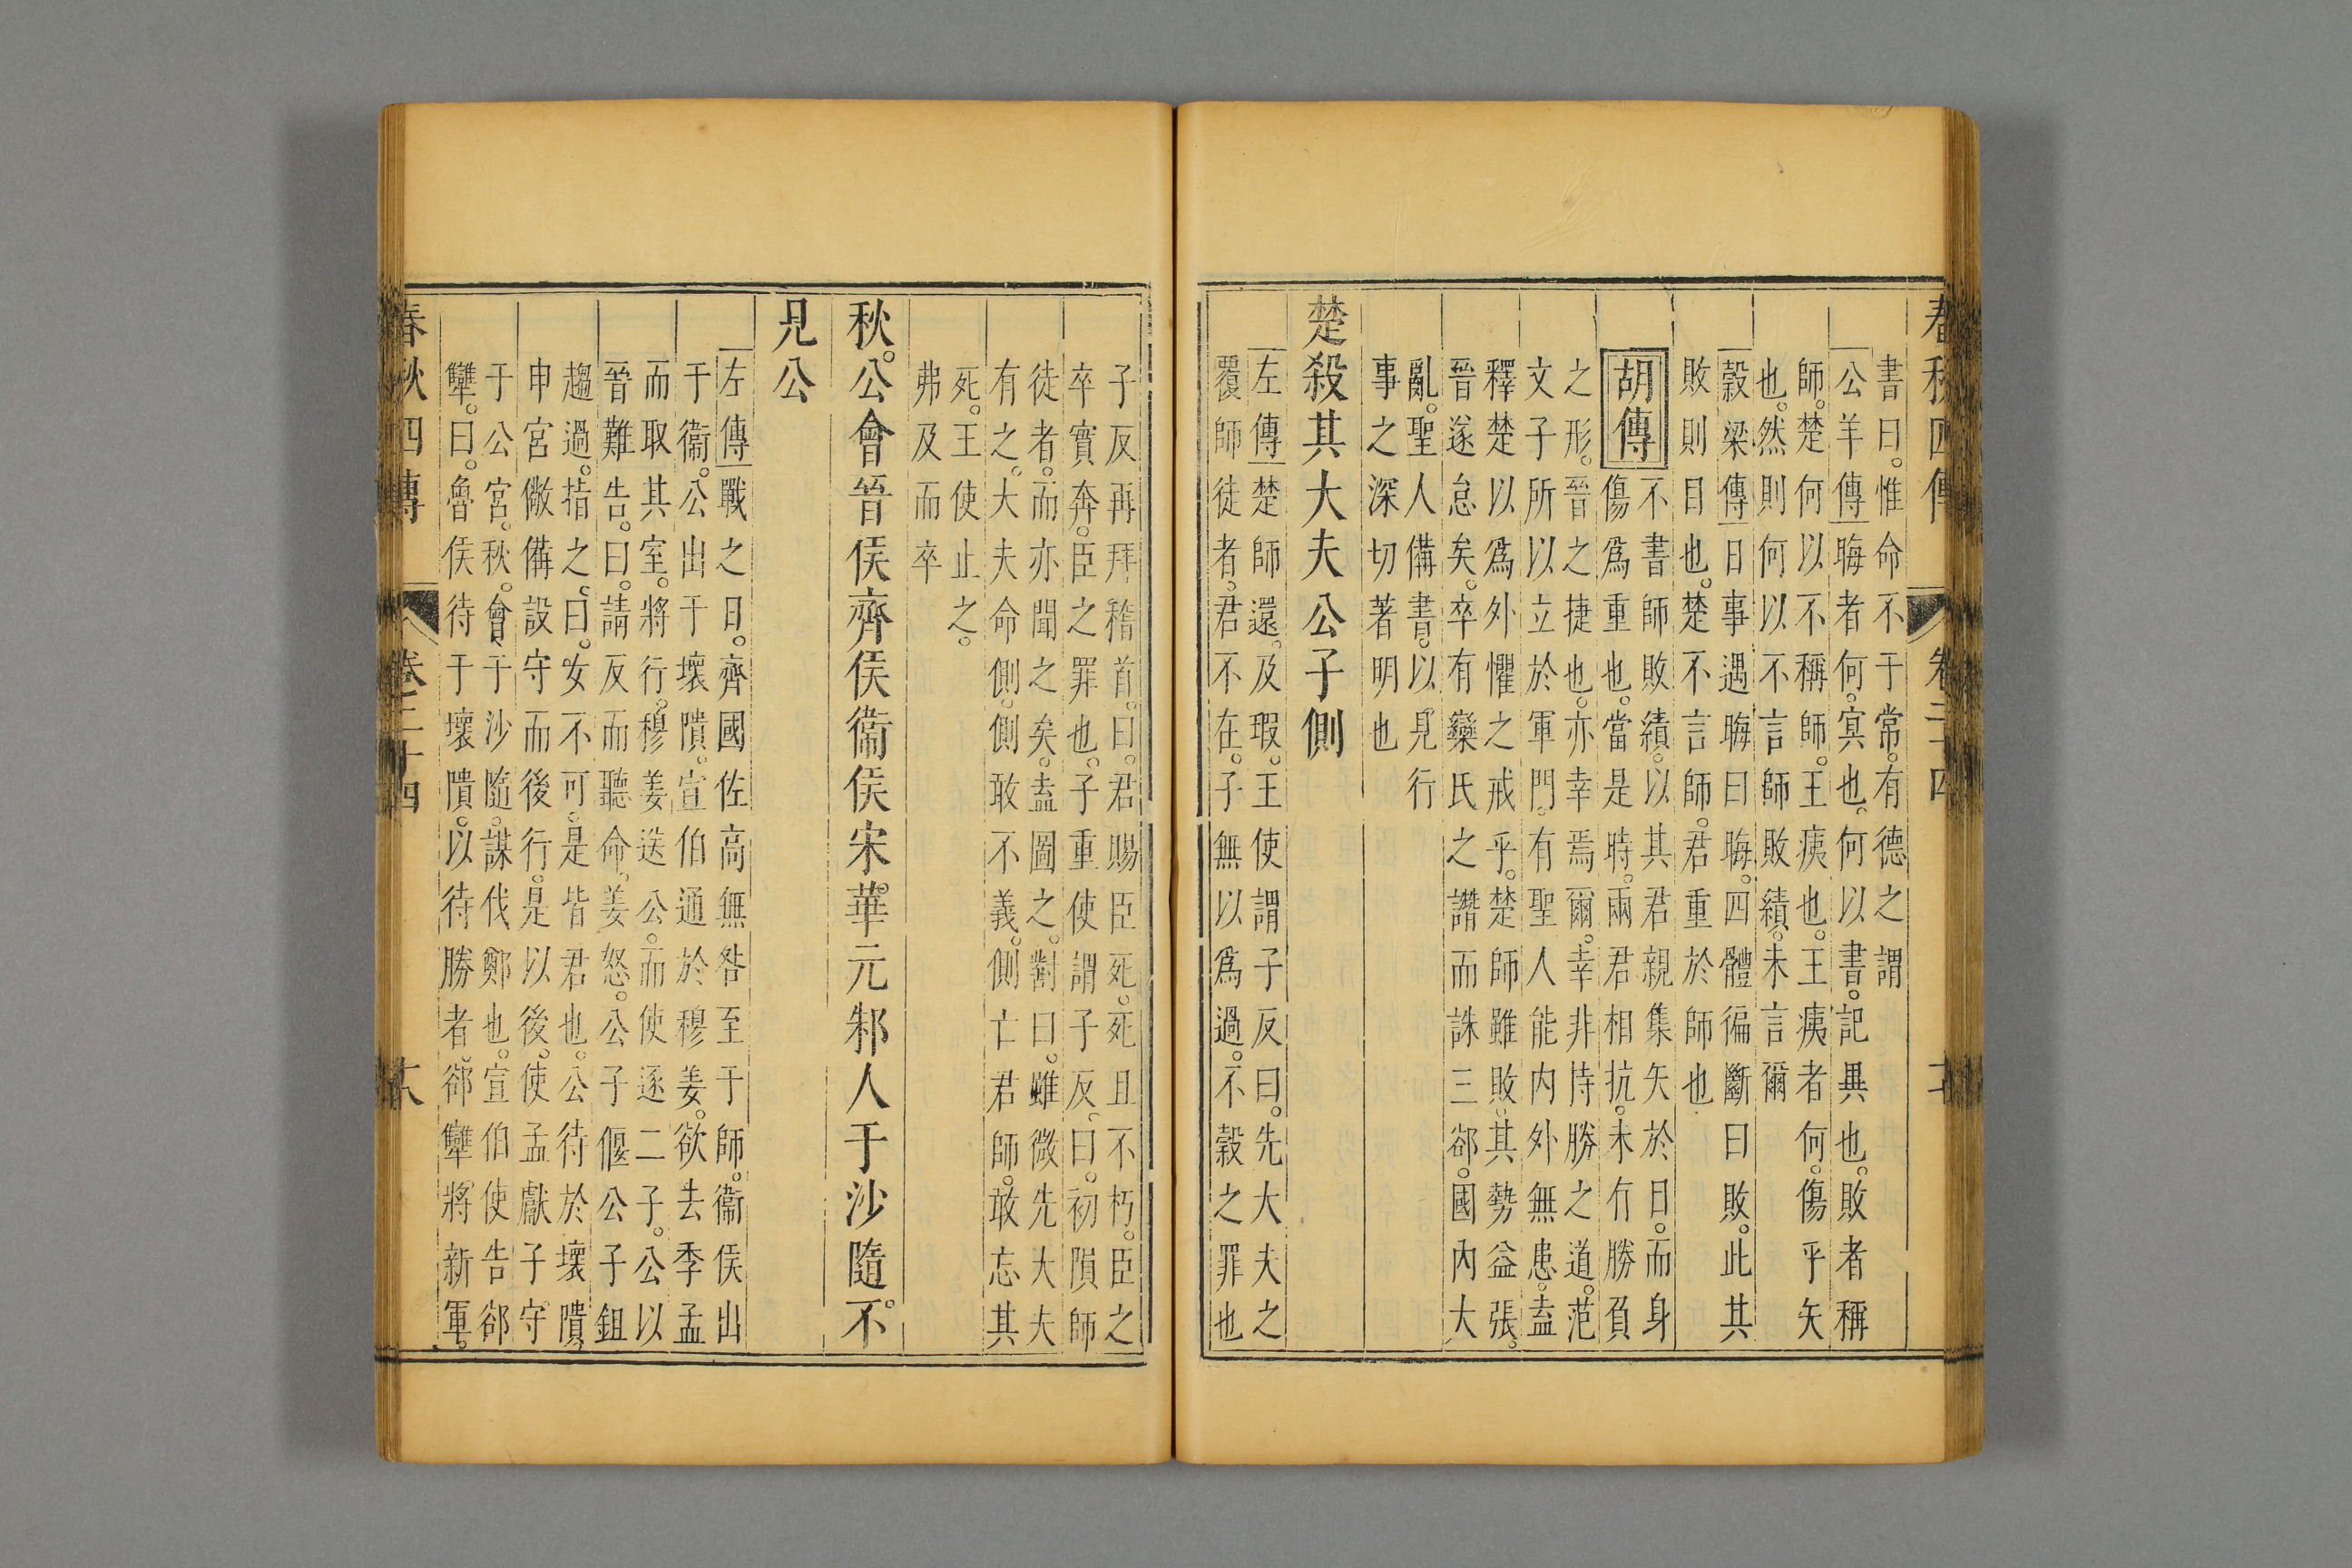 春秋四傳 卷二十四
書曰惟命不于常有德之謂
公羊傳晦者何冥也何以書記異也敗者稱
師楚何以不稱師王痍也王痍者何傷乎矢
也然則何以不言師敗績未言爾
穀梁傳日事遇晦曰晦四體偏斷曰敗此其
敗則目也楚不言師君重於師也
胡傳 不書師敗績以其君親集矢於目而身
傷爲重也當是時兩君相抗未有勝負
之形晉之捷也亦幸焉爾幸非恃勝之道范
文子所以立於軍門有聖人能内外無患盍
釋楚以爲外懼之戒乎楚師雖敗其勢益張
晉遂怠矣卒有欒氏之譖而誅三郤國内大
亂聖人備書以見行
事之深切著明也
楚殺其大夫公子側
左傳楚師還及瑕王使謂子反曰先大夫之
覆師徒者君不在子無以爲過不穀之罪也
子反再拜稽首曰君賜臣死死且不朽臣之
卒實奔臣之罪也子重使謂子反曰初隕師
徒者而亦聞之矣盍圖之對曰雖微先大夫
有之大夫命側側敢不義側亡君師敢忘其
死王使止之
弗及而卒
秋公會晉侯齊侯衞侯宋華元邾人于沙隨不
見公
左傳戰之日齊國佐高無咎至于師衞侯出
于衞公出于壞隤宣伯通於穆姜欲去季孟
而取其室將行穆姜送公而使逐二子公以
晉難告曰請反而聽命姜怒公子偃公子鉏
趨過指之曰女不可是皆君也公待於壞隤
申宮儆備設守而後行是以後使孟獻子守
于公宮秋會于沙隨謀伐鄭也宣伯使告郤
犫曰魯侯待于壞隤以待勝者郤犫將新軍
春秋四傳 卷二十四 十八